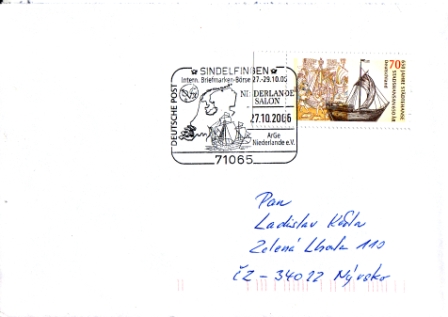 SINDELFINGEN
Intern. Briefmarken-Börse 27.-29.10.06
DEUTSCHE POST
NIEDERLANDE
SALON
27.10.2006
ArGe
Niederlande e.V.
71065
70
Deutschland
Pan
Ladislav
Zelená Lhota 110
ČZ - 34022 Nýrsko